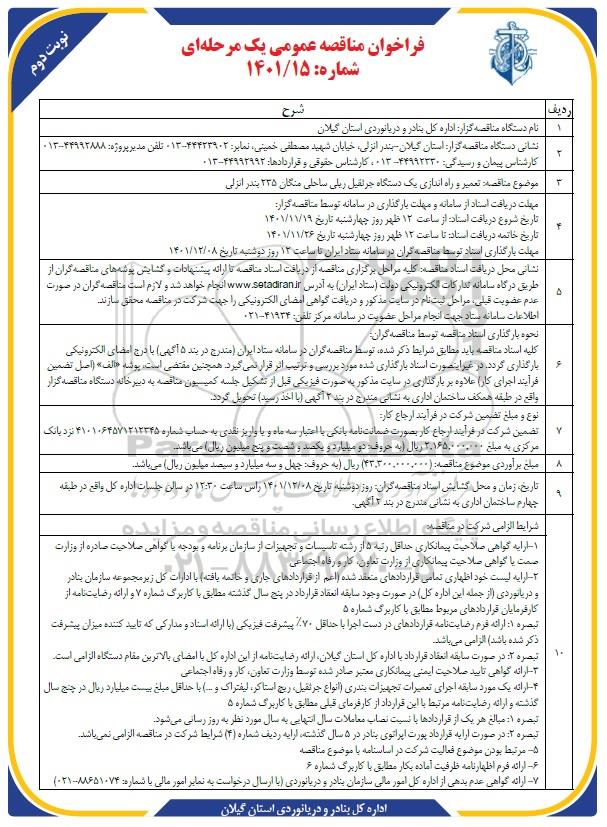 نوبت دوم
فراخوان مناقصه عمومی یک مرحله‌ای
شماره: ۱۴۰۱/۱۵
ردیف
شرح
۱
نام دستگاه مناقصه‌گزار: اداره کل بنادر و دریانوردی استان گیلان
۲
نشانی دستگاه مناقصه‌گزار: استان گیلان-بندر انزلی، خیابان شهید مصطفی خمینی، نمابر: ۴۴۴۲۳۹۰۲-۰۱۳ تلفن مدیرپروژه: ۴۴۹۹۲۸۸۸-۰۱۳
کارشناس پیمان و رسیدگی: ۴۴۹۹۲۲۳۰-۰۱۳ ، کارشناس حقوقی و قراردادها: ۴۴۹۹۲۹۹۲-۰۱۳
۳
موضوع مناقصه: تعمیر و راه اندازی یک دستگاه جرثقیل ریلی ساحلی متگان ۲۳۵ بندر انزلی
۴
مهلت دریافت اسناد از سامانه و مهلت بارگذاری در سامانه توسط مناقصه‌گزار:
تاریخ شروع دریافت اسناد: از ساعت ۱۲ ظهر روز چهارشنبه تاریخ ۱۴۰۱/۱۱/۱۹
تاریخ خاتمه دریافت اسناد: تا ساعت ۱۲ ظهر روز چهارشنبه تاریخ ۱۴۰۱/۱۱/۲۶
مهلت بارگذاری اسناد توسط مناقصه‌گران در سامانه ستاد ایران تا ساعت ۱۲ روز دوشنبه تاریخ ۱۴۰۱/۱۲/۰۸
۵
نشانی محل دریافت اسناد مناقصه: کلیه مراحل برگزاری مناقصه از دریافت اسناد مناقصه تا ارائه پیشنهادات و گشایش پوشه‌های مناقصه‌گران از
طریق درگاه سامانه تدارکات الکترونیکی دولت (ستاد ایران) به آدرس www.setadiran.ir انجام خواهد شد و لازم است مناقصه‌گران در صورت
عدم عضویت قبلی، مراحل ثبت‌نام در سایت مذکور و دریافت گواهی امضای الکترونیکی را جهت شرکت در مناقصه محقق سازند.
اطلاعات سامانه ستاد جهت انجام مراحل عضویت در سامانه مرکز تلفن: ۴۱۹۳۴-۰۲۱
۶
نحوه بارگذاری اسناد مناقصه توسط مناقصه‌گران:
کلیه اسناد مناقصه باید مطابق شرایط ذکر شده، توسط مناقصه‌گران در سامانه ستاد ایران (مندرج در بند ۵ آگهی) با درج امضای الکترونیکی
بارگذاری گردد. در غیراینصورت اسناد بارگذاری شده مورد بررسی و ترتیب اثر قرار نمی‌گیرد. همچنین مقتضی است، پوشه «الف» (اصل تضمین
فرآیند اجرای کار) علاوه بر بارگذاری در سایت مذکور به صورت فیزیکی قبل از تشکیل جلسه کمیسیون مناقصه به دبیرخانه دستگاه مناقصه‌گزار
واقع در طبقه همکف ساختمان اداری به نشانی مندرج در بند ۲ آگهی (با اخذ رسید) تحویل گردد.
۷
نوع و مبلغ تضمین شرکت در فرآیند ارجاع کار:
تضمین شرکت در فرآیند ارجاع کار بصورت ضمانت‌نامه بانکی با اعتبار سه ماه و یا واریز نقدی به حساب شماره ۴۱۰۱۰۶۴۵۷۱۲۱۲۳۴۵ نزد بانک
مرکزی به مبلغ ۲.۱۶۵.۰۰۰.۰۰۰ ریال (به حروف: دو میلیارد و یکصد و شصت و پنج میلیون ریال) می‌باشد.
۸
مبلغ برآوردی موضوع مناقصه: (۴۳.۳۰۰.۰۰۰.۰۰۰) ریال (به حروف: چهل و سه میلیارد و سیصد میلیون ریال) می‌باشد.
۹
تاریخ، زمان و محل گشایش اسناد مناقصه‌گران: روز دوشنبه تاریخ ۱۴۰۱/۱۲/۰۸ راس ساعت ۱۲:۳۰ در سالن جلسات اداره کل واقع در طبقه
چهارم ساختمان اداری به نشانی مندرج در بند ۲ آگهی.
۱۰
شرایط الزامی شرکت در مناقصه:
۱-ارایه گواهی صلاحیت پیمانکاری حداقل رتبه ۵ از رشته تاسیسات و تجهیزات از سازمان برنامه و بودجه یا گواهی صلاحیت صادره از وزارت
صمت یا گواهی صلاحیت پیمانکاری از وزارت تعاون، کار و رفاه اجتماعی
۲-ارایه لیست خود اظهاری تمامی قراردادهای منعقد شده (اعم از قراردادهای جاری و خاتمه یافته) با ادارات کل زیرمجموعه سازمان بنادر
و دریانوردی (از جمله این اداره کل) در صورت وجود سابقه انعقاد قرارداد در پنج سال گذشته مطابق با کاربرگ شماره ۷ و ارائه رضایت‌نامه از
کارفرمایان قراردادهای مربوط مطابق با کاربرگ شماره ۵
تبصره ۱: ارائه فرم رضایت‌نامه قراردادهای در دست اجرا با حداقل ۷۰٪ پیشرفت فیزیکی (با ارائه اسناد و مدارکی که تایید کننده میزان پیشرفت
ذکر شده باشد) الزامی می‌باشد.
تبصره ۲: در صورت سابقه انعقاد قرارداد با اداره کل استان گیلان، ارائه رضایت‌نامه از این اداره کل با امضای بالاترین مقام دستگاه الزامی است.
۳-ارائه گواهی تایید صلاحیت ایمنی پیمانکاری معتبر صادر شده توسط وزارت تعاون، کار و رفاه اجتماعی
۴-ارائه یک مورد سابقه اجرای تعمیرات تجهیزات بندری (انواع جرثقیل، ریچ استاکر، لیفتراک و ...) با حداقل مبلغ بیست میلیارد ریال در پنج سال
گذشته و ارائه رضایت‌نامه مرتبط با این قرارداد از کارفرمای قبلی مطابق با کاربرگ شماره ۵
تبصره ۱: مبالغ هر یک از قراردادها با نسبت نصاب معاملات سال انتهایی به سال مورد نظر به روز رسانی می‌شود.
تبصره ۲: در صورت ارایه قرارداد پورت اپراتوری بنادر در ۵ سال گذشته، ارایه ردیف شماره (۴) شرایط شرکت در مناقصه الزامی نمی‌باشد.
۵- مرتبط بودن موضوع فعالیت شرکت در اساسنامه با موضوع مناقصه
۶- ارائه فرم اظهارنامه ظرفیت آماده بکار مطابق با کاربرگ شماره ۶
۷- ارائه گواهی عدم بدهی از اداره کل امور مالی سازمان بنادر و دریانوردی (با ارسال درخواست به نمابر امور مالی با شماره: ۸۸۶۵۱۰۷۴-۰۲۱)
اداره کل بنادر و دریانوردی استان گیلان
پایگاه اطلاع رسانی مناقصه و مزایده